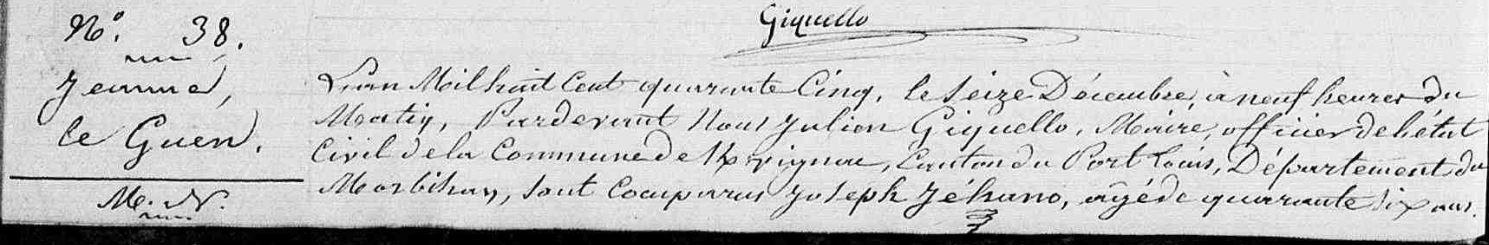 Giquello
N.º 38.
Jeanne,
le Guen.
M. N.
L'an Mil huit Cent quarante Cinq, le seize Décembre, à neuf heures du
Matin, Pardevant Nous Julien Giquello, Maire, officier de l'état
Civil de la Commune de Kvignac, Canton du Port Louis, Département du
Morbihan, sont Comparus Joseph Jéhano, âgé de quarante six ans.